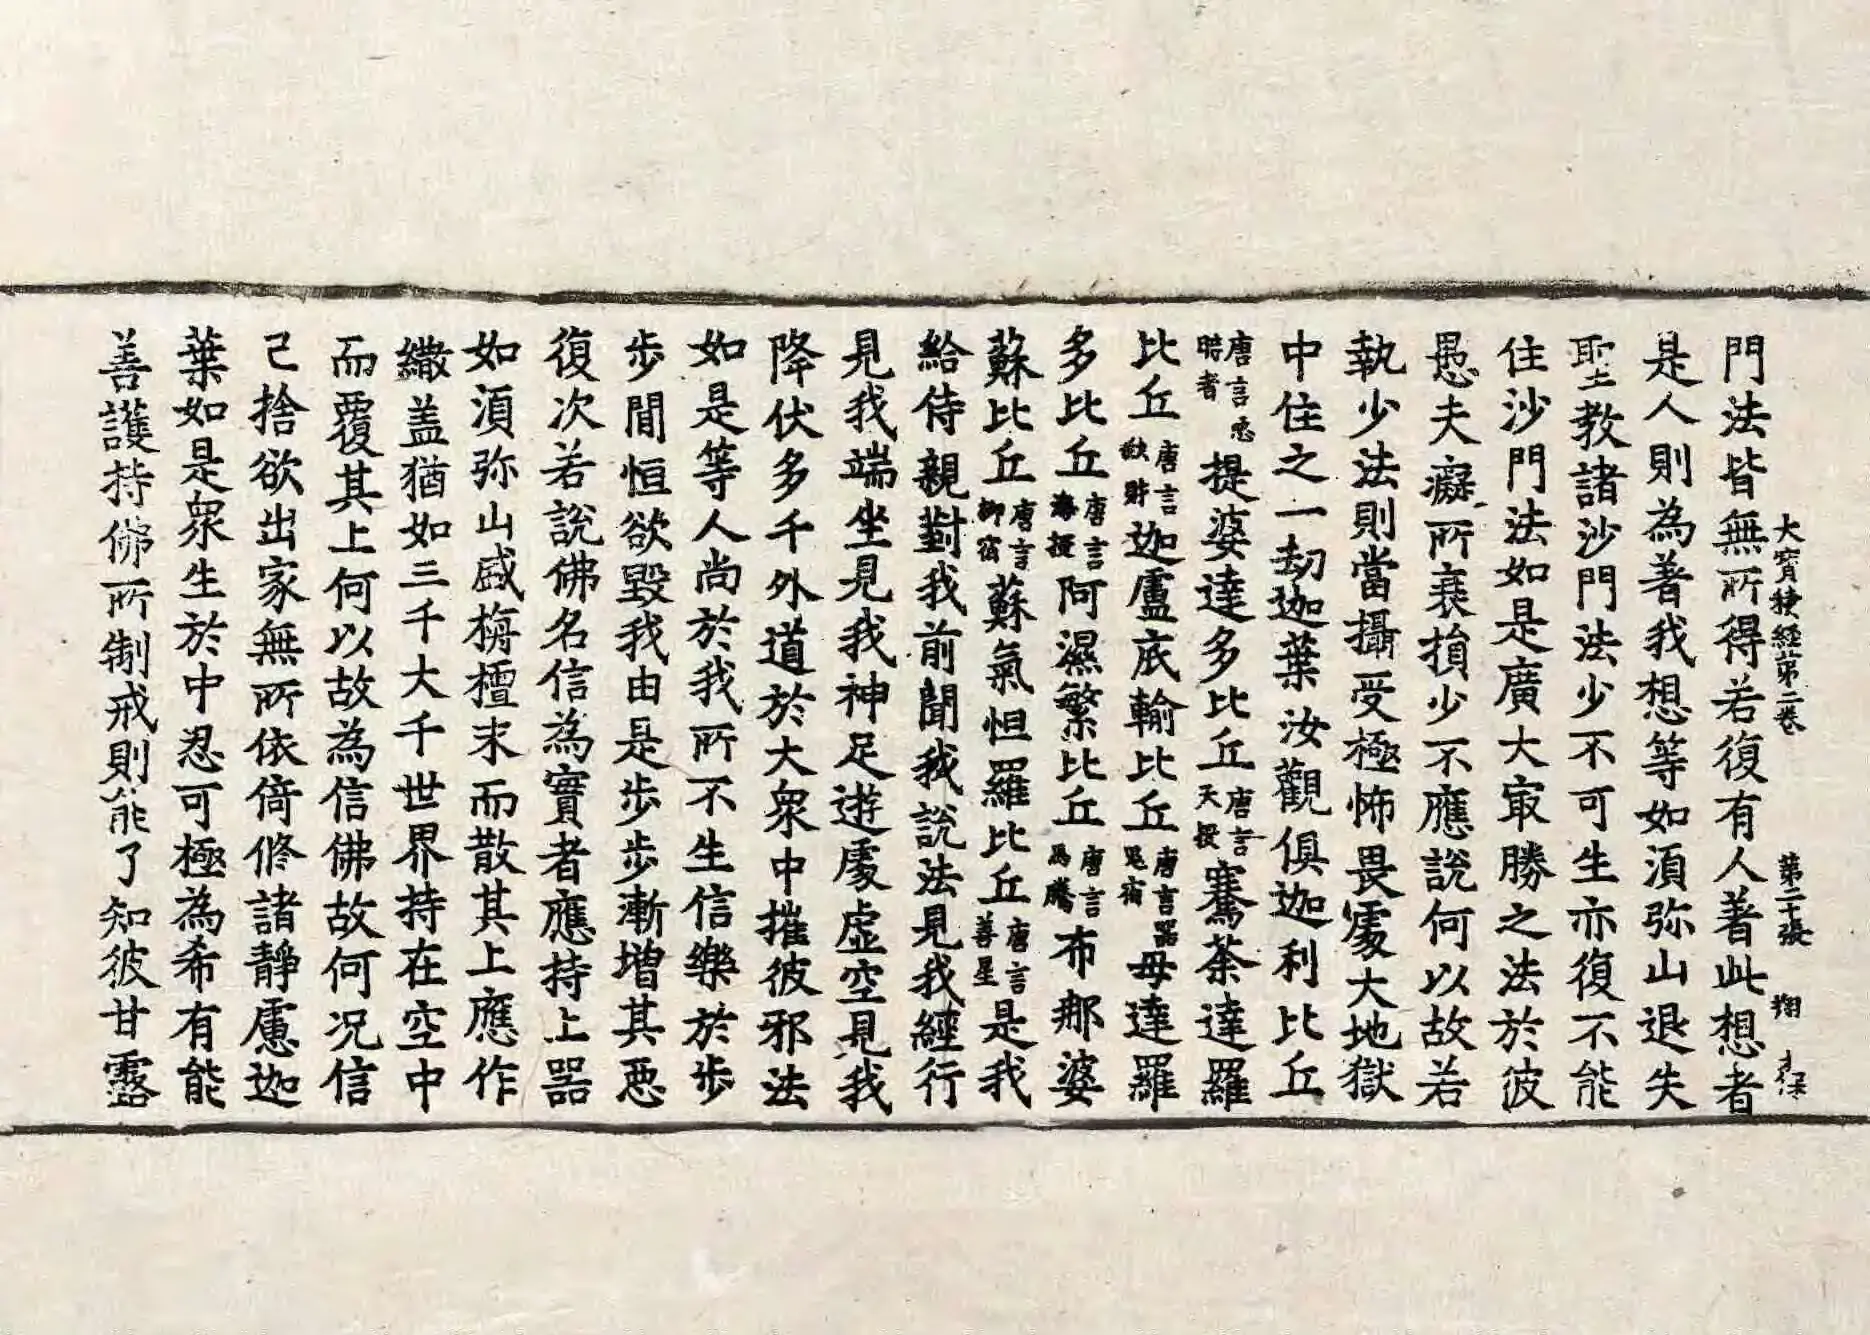 大寶積經第二卷 第二十張 翔
門法皆無所得若復有人著此想者
是人則為著我想等如須弥山退失
聖教諸沙門法少不可生亦復不能
住沙門法如是廣大冣勝之法於彼
愚夫癡所衰損少不應說何以故若
執少法則當攝受極怖畏處大地獄
中住之一劫迦葉汝觀俱迦利比丘
唐言惡時者提婆達多比丘唐言天授騫荼達羅
比丘唐言缺財迦盧底輸比丘唐言器冕宿母達羅
多比丘唐言海授阿濕繁比丘唐言馬騰布那婆
蘇比丘唐言柳宿蘇氣怛羅比丘唐言善星是我
給侍親對我前聞我說法見我經行
見我端坐見我神足遊處虛空見我
降伏多千外道於大衆中摧彼邪法
如是等人尚於我所不生信樂於步
步間恒欲毀我由是步步漸增其惡
復次若說佛名信為實者應持上器
如須弥山盛栴檀末而散其上應作
繖盖猶如三千大千世界持在空中
而覆其上何以故為信佛故何況信
己捨欲出家無所依倚修諸靜慮迦
葉如是衆生於中忍可極為希有能
善護持佛所制戒則能了知彼甘露